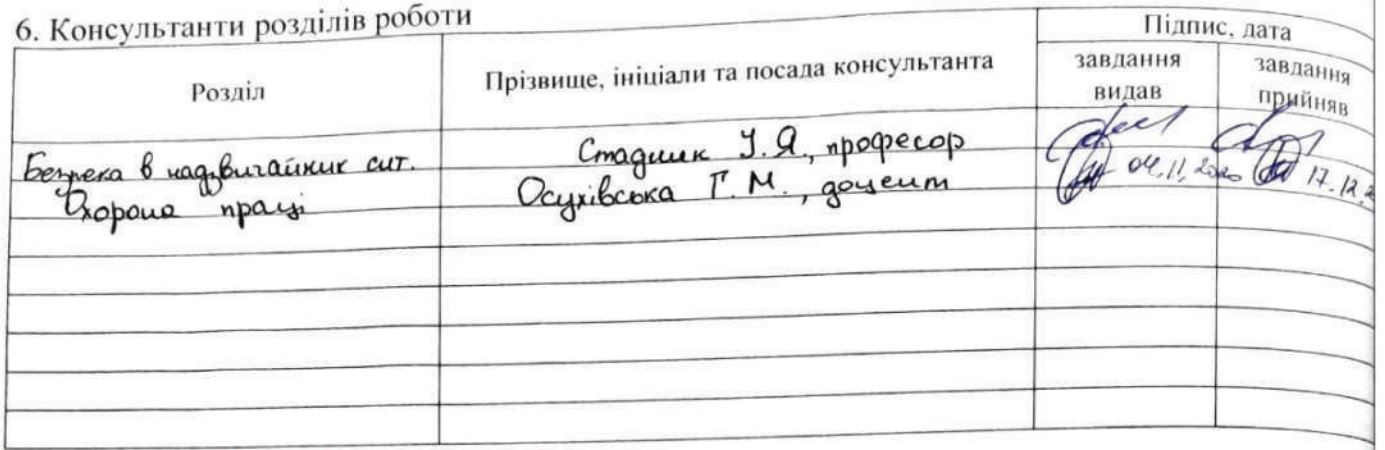 6. Консультанти розділів роботи
Розділ
Прізвище, ініціали та посада консультанта
Підпис, дата
завдання видав
завдання прийняв
Безпека в надзвичайних сит.
Стадник І. Я., професор
Охорона праці
Осухівська Г. М., доцент
04.11.2020
17.12.2